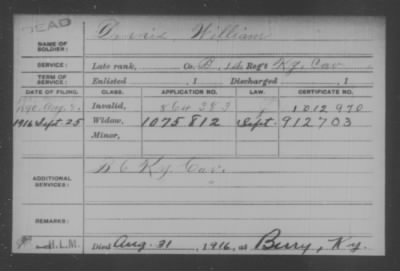 DEAD
NAME OF SOLDIER: William
SERVICE: Late rank, Co. B, Reg't Ky. Cav.
TERM OF SERVICE: Enlisted , 1 Discharged , 1
DATE OF FILING. CLASS. APPLICATION NO. LAW. CERTIFICATE NO.
Aug. Invalid, 864 383 1012970
1916 Sept 25 Widow, 1075812 Sept. 912703
Minor,
ADDITIONAL SERVICES: Ky. Cav.
REMARKS:
H.L.M. Died Aug. 31, 1916, at Berry, Ky.